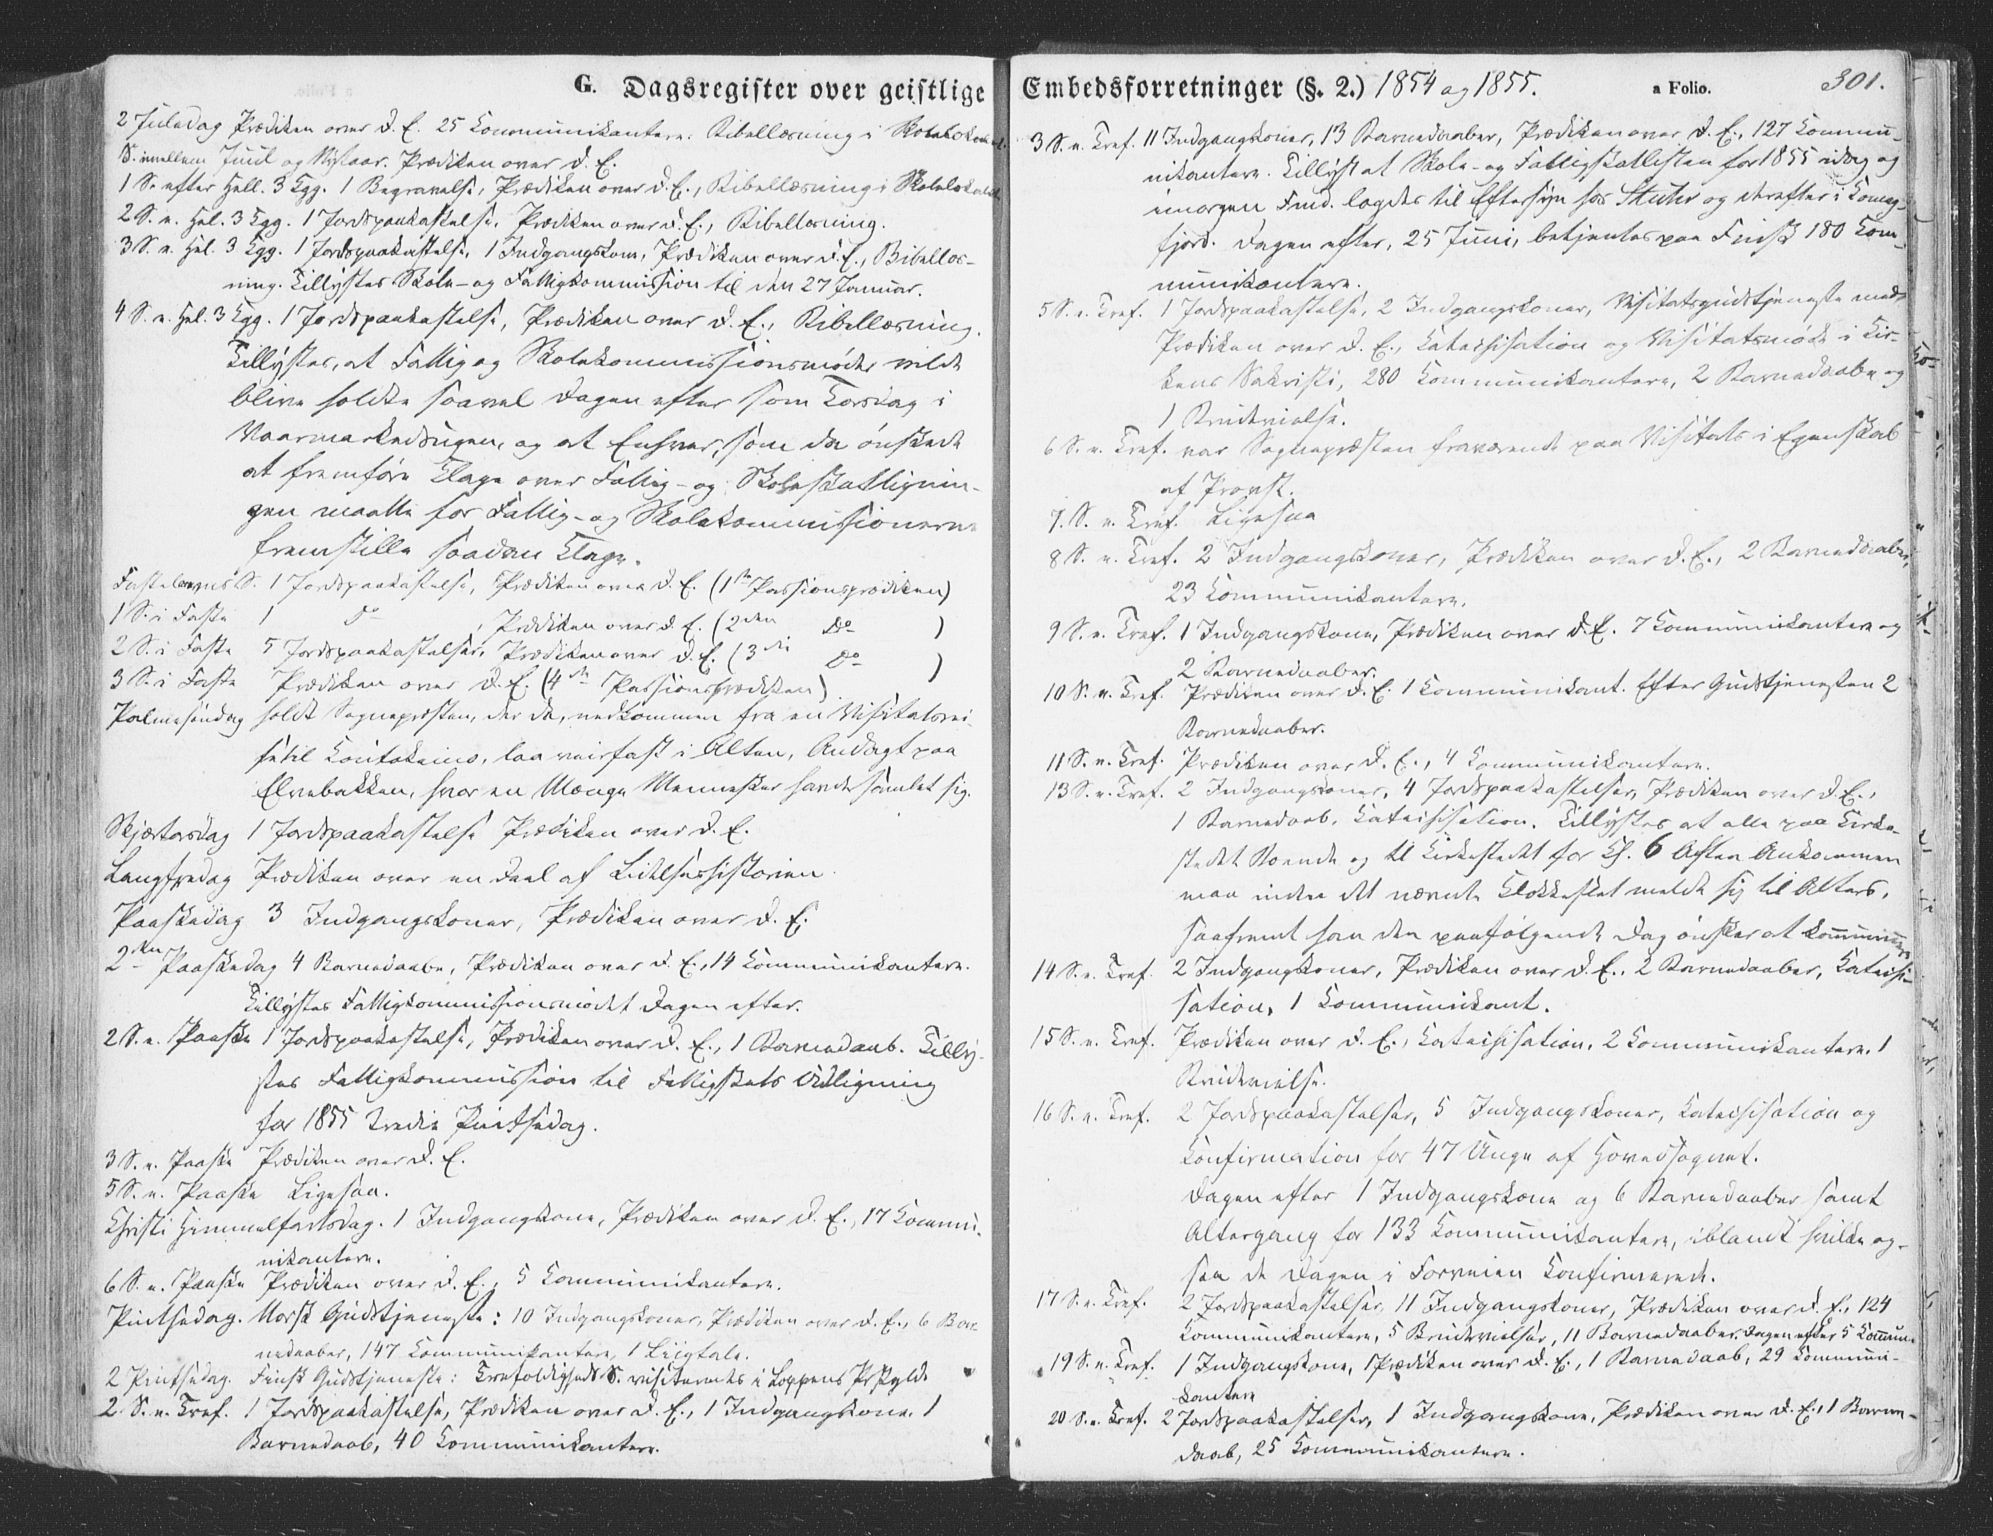 G. Dagsregister over geistlige
2 Juledag Prædiken over d. E. 25 Communikantere. Bibellæsning i Skolelokalet.
S. imellem Juul og Nytaar. Prædiken over d. E.
1 S. efter Hell. 3 Kgg. 1 Begravelse, Prædiken over d. E., Bibellæsning i Skolelokalet
2 S. e. Hel. 3 Kgg. 1 Jordspaakastelse, Prædiken over d. E., Bibellæsning.
3 S. e. Hel. 3 Kgg. 1 Jordspaakastelse, 1 Indgangskone, Prædiken over d. E., Bibellæs-
ning. Tillystes Skole- og Fattigkommission til den 27 Januar.
4 S. e. Hel. 3 Kgg. 1 Jordspaakastelse, Prædiken over d. E., Bibellæsning.
Tillystes, at Fattig og Skolekommissionsmøder vilde
blive holdte saavel Dagen efter som Torsdag i
Vaarmarkedsugen, og at Enhver, som da ønskede
at fremføre Klage over Fattig- og Skoleskatlignin-
gen maatte for Fattig- og Skolekommissionerne
fremstille saadan Klage.
Fastelavns S. 1 Jordspaakastelse, Prædiken over d. E. (1ste Passionsprædiken)
1 S. i Faste 1 do , Prædiken over d. E. (2den Do )
2 S. i Faste 5 Jordspaakastelser, Prædiken over d. E. (3die Do )
3 S. i Faste Prædiken over d. E. (4de Passionsprædiken)
Palmesøndag holdt Sognepræsten, der da, nedkommen fra en Visitatsrei-
se til Koutokeino, laa veirfast i Alten, Andagt paa
Elvebakken, hvor en Mængde Mennesker havde samlet sig.
Skjærtorsdag 1 Jordspaakastelse Prædiken over d. E.
Langfredag Prædiken over en Deel af Lidelseshistorien.
Paaskedag 3 Indgangskoner, Prædiken over d. E.
2den Paaskedag 4 Barnedaabe, Prædiken over d. E., 14 Communikantere.
Tillystes Fattigkommissionsmødet Dagen efter.
2 S. e. Paaske 1 Jordspaakastelse, Prædiken over d. E., 1 Barnedaab. Tilly-
stes Fattigkommission til Fattigskats Udligning
for 1855 tredie Pintsedag.
3 S. e. Paaske Prædiken over d. E.
5 S. e. Paaske Ligesaa.
Christi Himmelfartsdag. 1 Indgangskone, Prædiken over d. E., 17 Commu-
nikantere.
6 S. e. Paaske Prædiken over d. E., 5 Communikantere.
Pintsedag. Norsk Gudstjeneste: 10 Indgangskoner, Prædiken over d. E., 6 Bar-
nedaaber, 147 Communikantere, 1 Liigtale.
2 Pintsedag. Finsk Gudstjeneste: Trefoldigheds S. visiteredes i Loppens Prstgjeld.
2. S. e. Tref. 1 Jordspaakastelse, Prædiken over d. E., 1 Indgangskone, 1
Barnedaab, 40 Communikantere.
Embedsforretninger (§. 2.) 1854 og 1855. a Folio. 301.
3 S. e. Tref. 11 Indgangskoner, 13 Barnedaaber, Prædiken over d. E., 127 Commu-
nikantere. Tillyst at Skole- og Fattigskatlisten for 1855 idag og
imorgen Fmd. lagdes til Eftersyn hos Stuhr og derefter i Komag-
fjord. Dagen efter, 25 Juni, betjentes paa Finsk 180 Com-
munikantere.
5 S. e. Tref. 1 Jordspaakastelse, 2 Indgangskoner, Visitatsgudstjeneste med
Prædiken over d. E., Catechisation og Visitatsmøde i Kir-
kens Sakristi, 280 Communikantere, 2 Barnedaabe og
1 Brudevielse.
6 S. e. Tref. var Sognepræsten fraværende paa Visitats i Egenskab
af Provst.
7. S. e. Tref. Ligesaa
8 S. e. Tref. 2 Indgangskoner, Prædiken over d. E., 2 Barnedaaber,
23 Communikantere.
9 S. e. Tref. 1 Indgangskone, Prædiken over d. E. 7 Communikantere og
2 Barnedaaber.
10 S. e. Tref. Prædiken over d. E. 1 Communikant. Efter Gudstjenesten 2
Barnedaaber.
11 S. e. Tref. Prædiken over d. E., 4 Communikantere.
13 S. e. Tref. 2 Indgangskoner, 4 Jordspaakastelser, Prædiken over d. E.,
1 Barnedaab, Catechisation. Tillystes at alle paa Kirke-
stedet Boende og til Kirkestedet før Kl. 6 Aften Ankommen
maa inden det nævnte Klokkeslet melde sig til Alters,
saafremt han den paafølgende Dag ønsker at kommunicere
14 S. e. Tref. 2 Indgangskoner, Prædiken over d. E., 2 Barnedaaber, Catechi-
sation, 1 Communikant.
15 S. e. Tref. Prædiken over d. E., Catechisation, 2 Communikantere, 1
Brudevielse.
16 S. e. Tref. 2 Jordspaakastelser, 5 Indgangskoner, Catechisation og
Confirmation for 47 Unge af Hovedsognet.
Dagen efter 1 Indgangskone og 6 Barnedaaber samt
Altergang for 133 Communikantere, iblandt hvilke og-
saa de Dagen i Forveien Confirmerede.
17 S. e. Tref. 2 Jordspaakastelser, 11 Indgangskoner, Prædiken over d. E., 124
Communikantere, 5 Brudevielser, 11 Barnedaaber. Dagen efter 5 Commun-
19 S. e. Tref. 1 Indgangskone, Prædiken over d. E., 1 Barnedaab, 29 Communi-
kantere
20 S. e. Tref. 2 Jordspaakastelser, 1 Indgangskone, Prædiken over d. E., 1 Barne-
daab, 25 Communikantere.